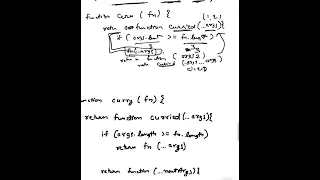 function curry (fn) {
(1, 2,
return function curried (...args) {
if (args.length >= fn.length) {
3 3
fn(...args);
return function (args2)
return curried (...args
unction curry (fn) {
return function curried (...args) {
if (args.length >= fn.length)
return fn (...args)
return function (...nextArgs) {